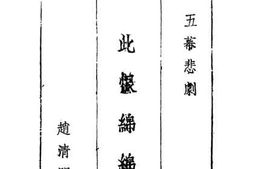 五幕悲劇
此恨綿綿
趙清